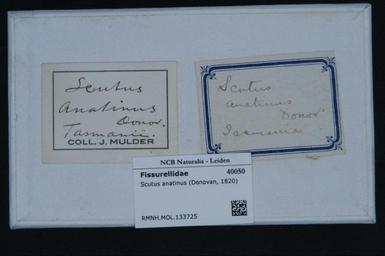 Scutus
Anatinus
Donov.
Tasmanie.
COLL. J. MULDER
Scutus
anatinus
Donov.
Tasmania
NCB Naturalis - Leiden
Fissurellidae 40050
Scutus anatinus (Donovan, 1820)
RMNH.MOL.133725